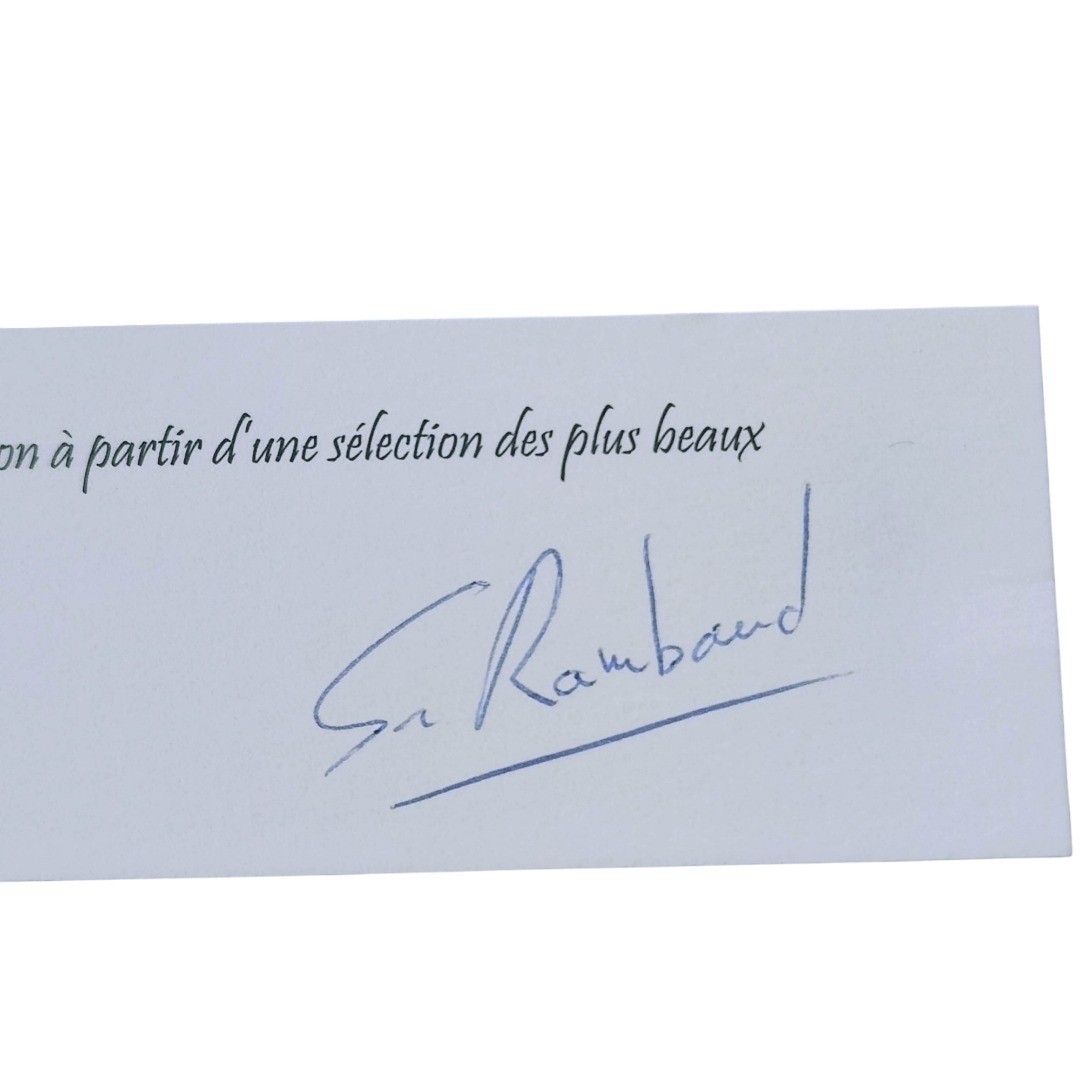 on à partir d'une sélection des plus beaux
Rambaud